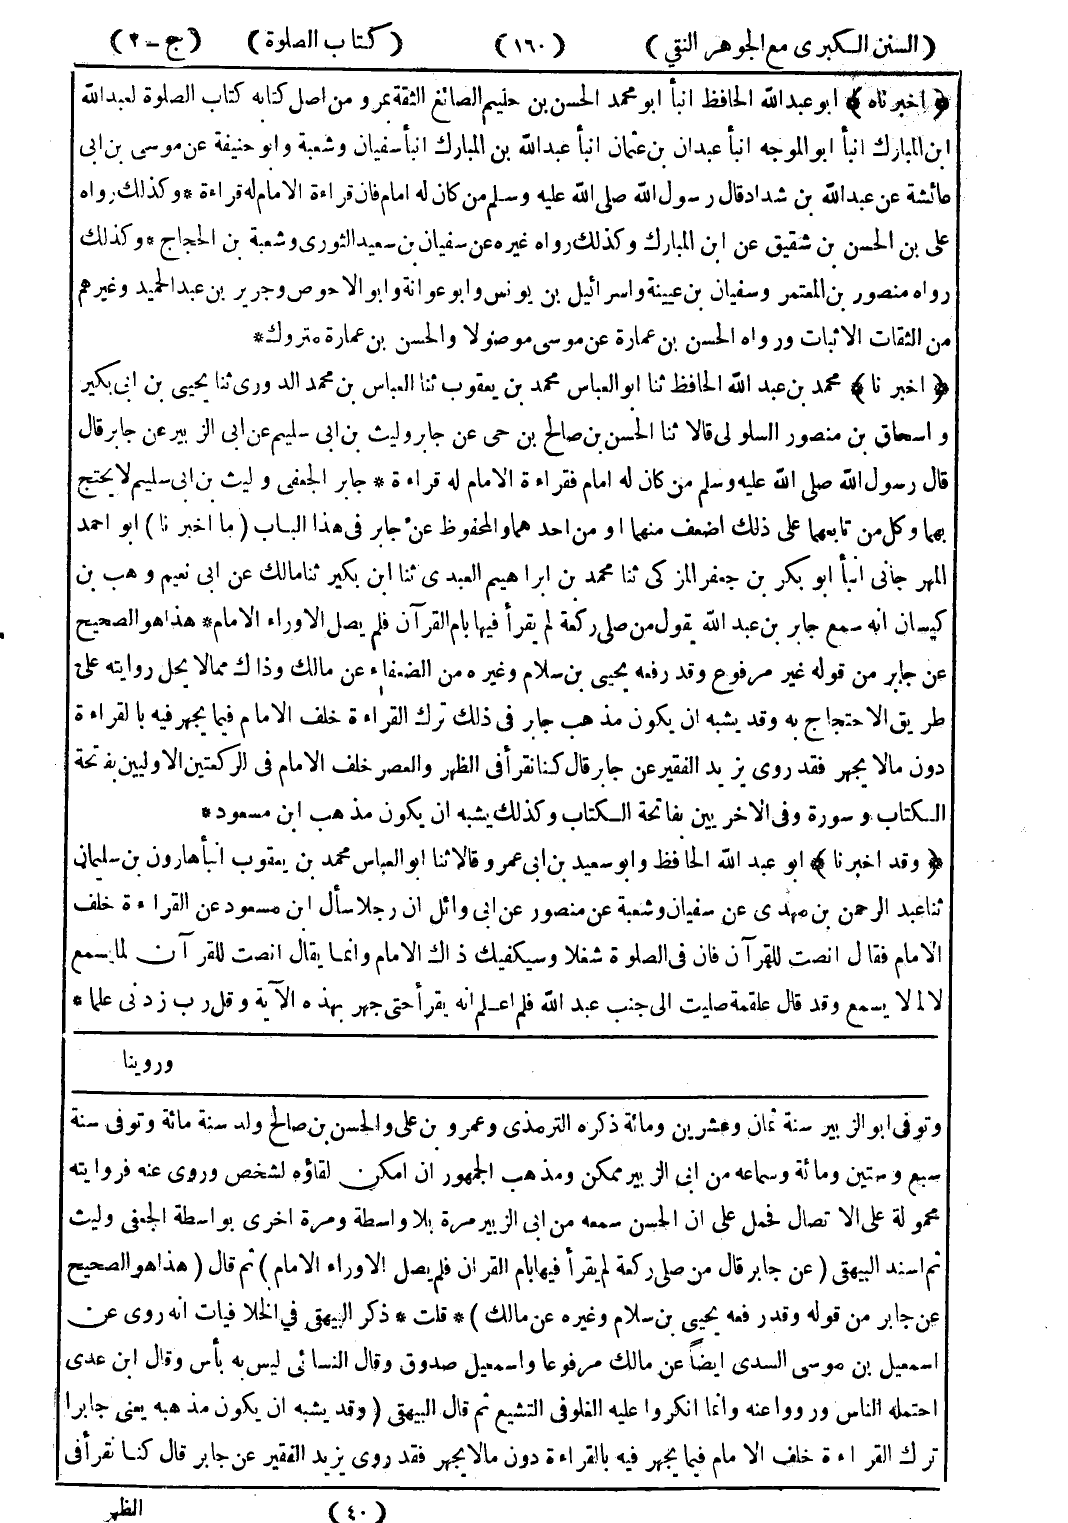 (السنن الكبرى مع الجوهر النقي) (١٦٠) (كتاب الصلوة) (ج - ٢)
﴿ اخبرناه ﴾ ابو عبد الله الحافظ انبأ ابو محمد الحسن بن حليم الصائغ الثقة بمرو من اصل كتابه كتاب الصلوة لعبد الله
ابن المبارك انبأ ابو الموجه انبأ عبدان بن عثمان انبأ عبد الله بن المبارك انبأ سفيان وشعبة وابو حنيفة عن موسى بن ابى
عائشة عن عبد الله بن شداد قال رسول الله صلى الله عليه وسلم من كان له امام فان قراءة الامام له قراءة * وكذلك رواه
على بن الحسن بن شقيق عن ابن المبارك وكذلك رواه غيره عن سفيان بن سعيد الثورى وشعبة بن الحجاج * وكذلك
رواه منصور بن المعتمر وسفيان بن عيينة واسرائيل بن يونس وابو عوانة وابو الاحوص وجرير بن عبد الحميد وغيرهم
من الثقات الاثبات ورواه الحسن بن عمارة عن موسى موصولا والحسن بن عمارة متروك *
﴿ اخبرنا ﴾ محمد بن عبد الله الحافظ ثنا ابو العباس محمد بن يعقوب ثنا العباس بن محمد الدورى ثنا يحيى بن ابى بكير
و اسحاق بن منصور السلولى قالا ثنا الحسن بن صالح بن حى عن جابر وليث بن ابى سليم عن ابى الزبير عن جابر قال
قال رسول الله صلى الله عليه وسلم من كان له امام فقراءة الامام له قراءة * جابر الجعفى وليث بن ابى سليم لا يحتج
بهما وكل من تابعهما على ذلك اضعف منهما او من احدهما والمحفوظ عن جابر فى هذا الباب (ما اخبرنا) ابو احمد
المهرجانى انبأ ابو بكر بن جعفر المزكى ثنا محمد بن ابراهيم العبدى ثنا ابن بكير ثنا مالك عن ابى نعيم وهب بن
كيسان انه سمع جابر بن عبد الله يقول من صلى ركعة لم يقرأ فيها بام القرآن فلم يصل الا وراء الامام * هذا هو الصحيح
عن جابر من قوله غير مرفوع وقد رفعه يحيى بن سلام وغيره من الضعفاء عن مالك وذاك مما لا يحل روايته على
طريق الاحتجاج به وقد يشبه ان يكون مذهب جابر فى ذلك ترك القراءة خلف الامام فيما يجهر فيه بالقراءة
دون مالا يجهر فقد روى يزيد الفقير عن جابر قال كنا نقرأ فى الظهر والعصر خلف الامام فى الركعتين الاوليين بفاتحة
الكتاب وسورة وفى الاخريين بفاتحة الكتاب وكذلك يشبه ان يكون مذهب ابن مسعود *
﴿ وقد اخبرنا ﴾ ابو عبد الله الحافظ وابو سعيد بن ابى عمرو قالا ثنا ابو العباس محمد بن يعقوب انبأ هارون بن سليمان
ثنا عبد الرحمن بن مهدى عن سفيان وشعبة عن منصور عن ابى وائل ان رجلا سأل ابن مسعود عن القراءة خلف
الامام فقال انصت للقرآن فان فى الصلوة شغلا وسيكفيك ذاك الامام وانما يقال انصت للقرآن لما يسمع
لا لما لا يسمع وقد قال علقمة صليت الى جنب عبد الله فلم اعلم انه يقرأ حتى جهر بهذه الآية وقل رب زدنى علما *
وروينا
وتوفى ابو الزبير سنة ثمان وعشرين ومائة ذكره الترمذى وعمرو بن على والحسن بن صالح ولد سنة مائة وتوفى سنة
سبع وستين ومائة وسماعه من ابى الزبير ممكن ومذهب الجمهور ان امكن لقاؤه لشخص وروى عنه فروايته
محمولة على الاتصال فحمل على ان الحسن سمعه من ابى الزبير مرة بلا واسطة ومرة اخرى بواسطة الجعفى وليث
ثم اسند البيهقى (عن جابر قال من صلى ركعة لم يقرأ فيها بام القران فلم يصل الا وراء الامام) ثم قال (هذا هو الصحيح
عن جابر من قوله وقد رفعه يحيى بن سلام وغيره عن مالك) * قلت * ذكر البيهقى في الخلافيات انه روى عن
اسمعيل بن موسى السدى ايضاً عن مالك مرفوعا واسمعيل صدوق وقال النسائى ليس به بأس وقال ابن عدى
احتمله الناس ورووا عنه وانما انكروا عليه الغلو فى التشيع ثم قال البيهقى (وقد يشبه ان يكون مذهبه يعنى جابرا
ترك القراءة خلف الامام فيما يجهر فيه بالقراءة دون مالا يجهر فقد روى يزيد الفقير عن جابر قال كنا نقرأ فى
(٤٠) الظهر